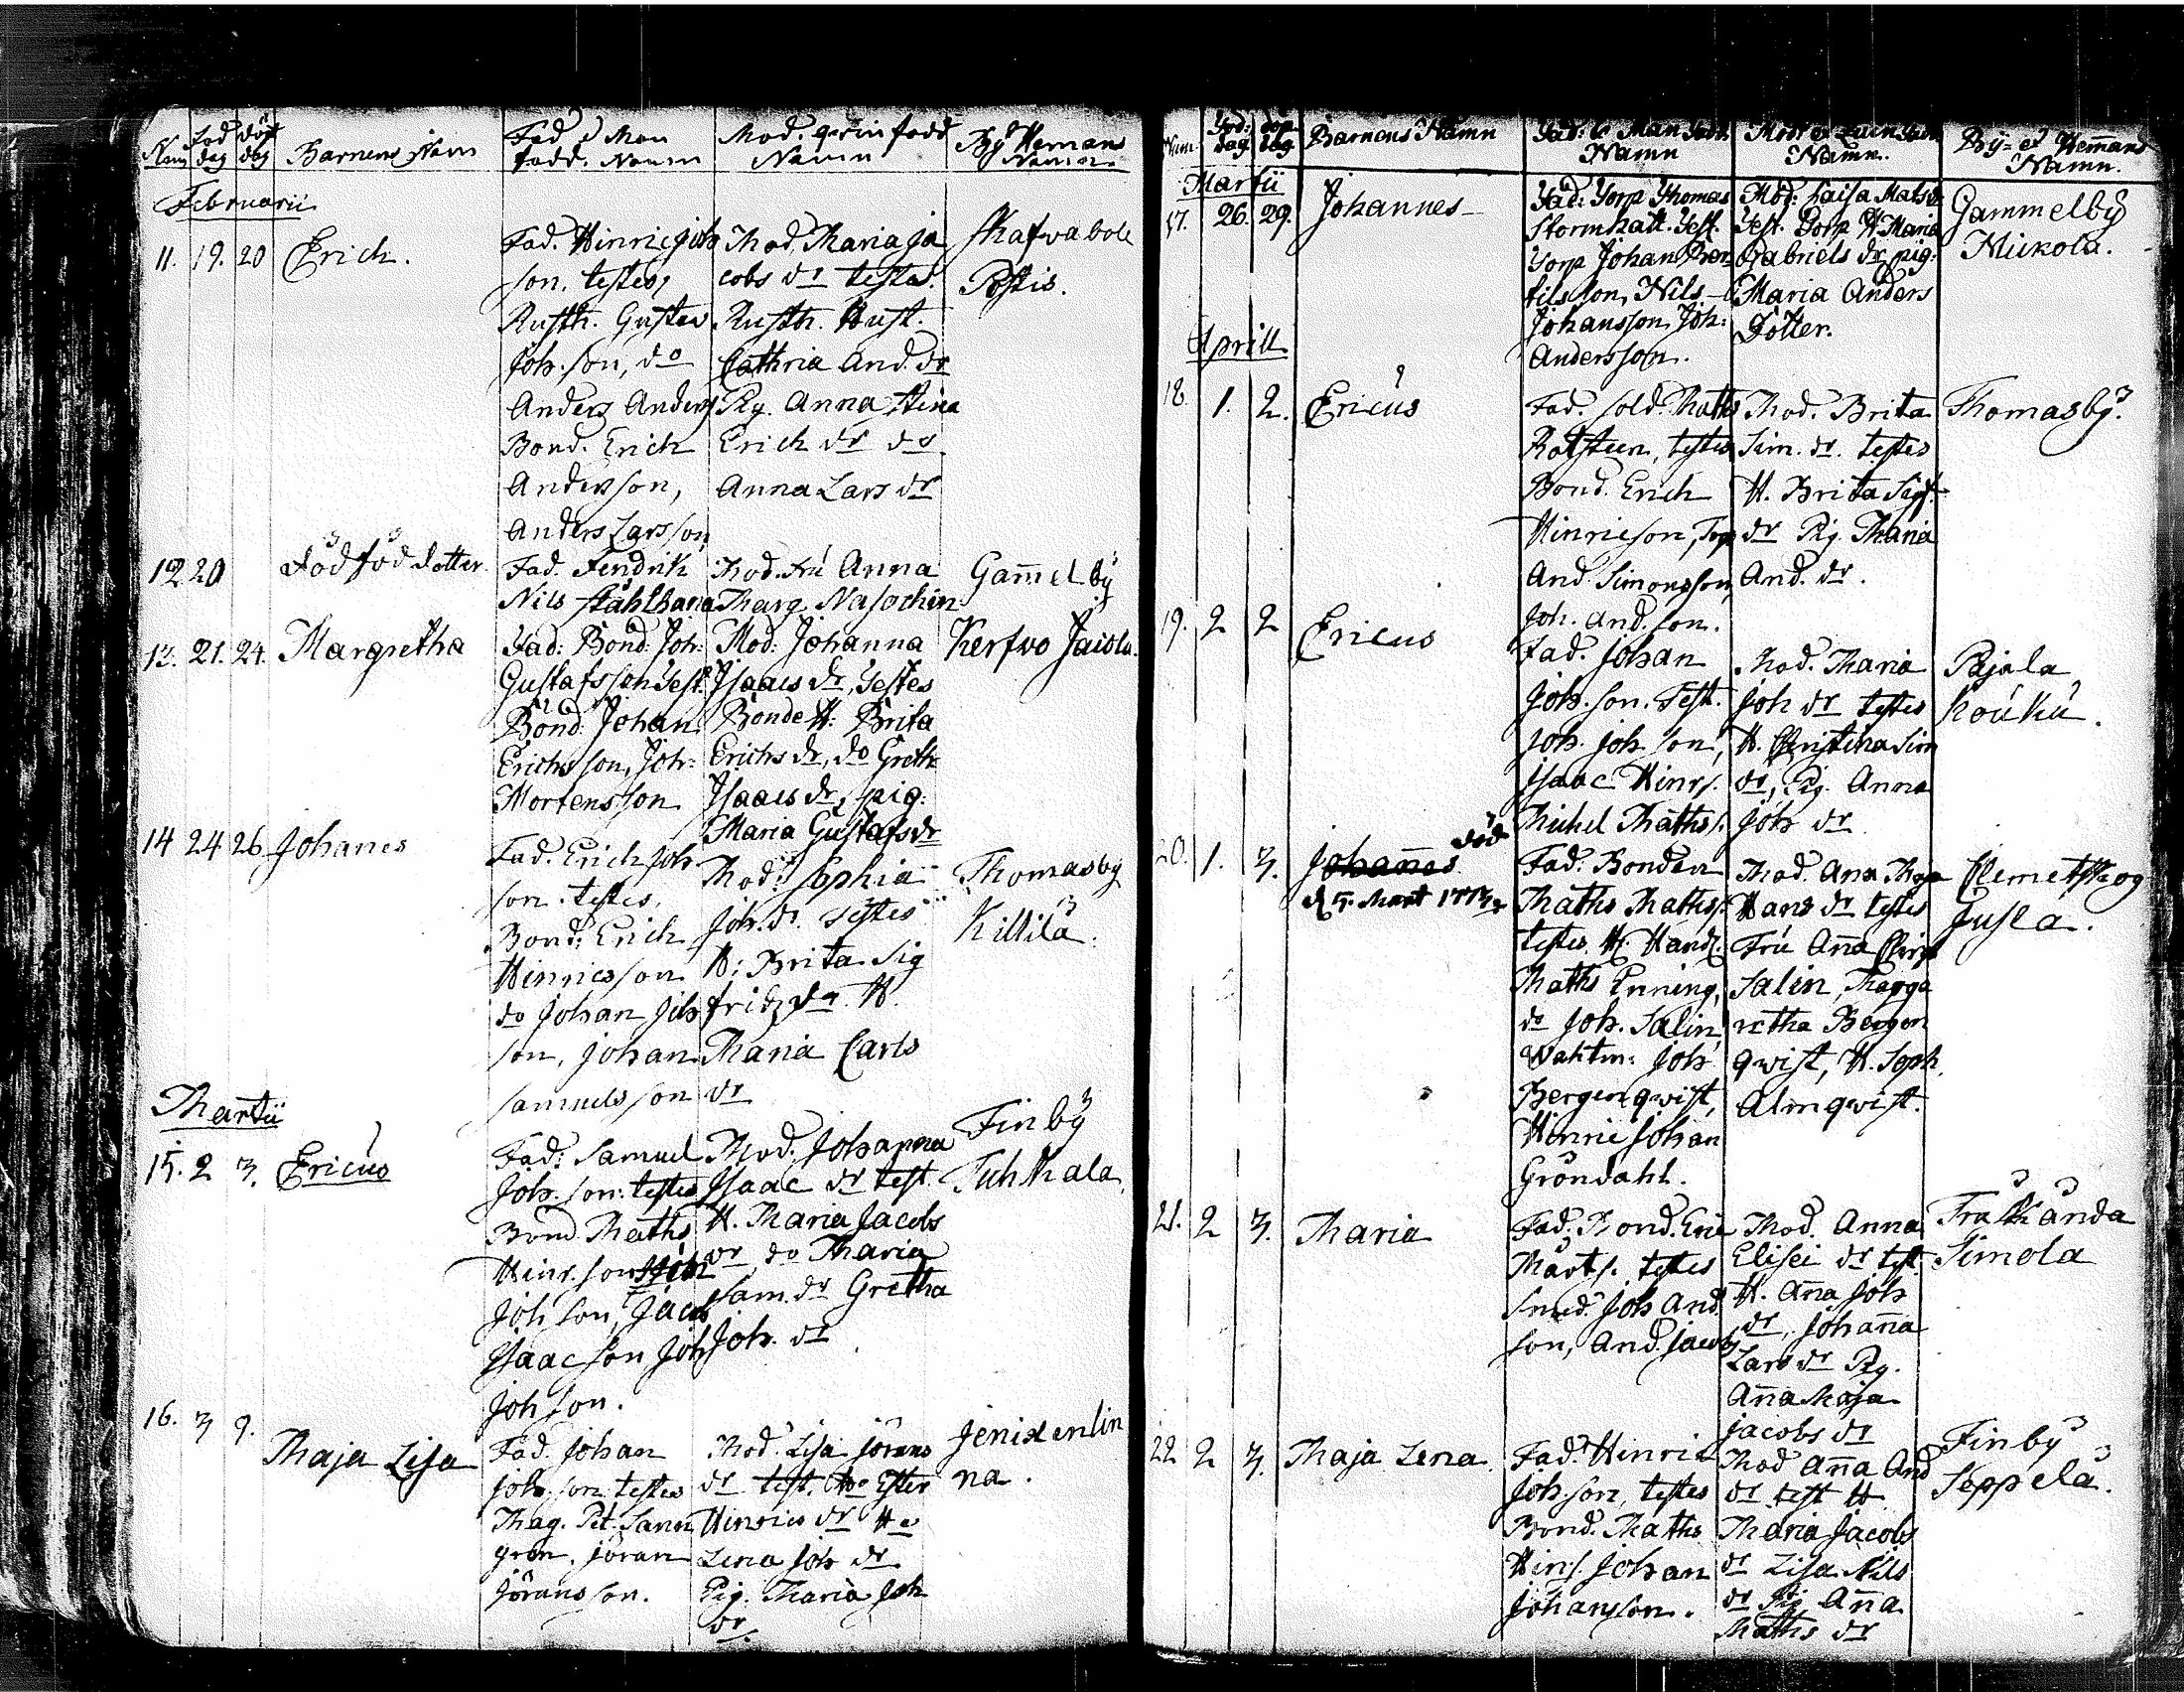 Num
Föd dag
döpt dag
Barnens Namn
Fad. o Man fadd. Namn
Mod. o qvin fadd Namn
By o Hemans Namn
Februarii
11. 19. 20 Erich.
Fad. Hinric Joh
son. testes,
Rusth. Gustav
Joh. son, do
Anders Anders
Bond. Erich
Andersson,
Anders Larsson
Mod. Maria Ja
cobs dr testes.
Rusth. Hust.
Cathria And. dr
Pig. Anna Stina
Erich dr do
Anna Lars dr
Skafvabole
Postis.
12 20 dödföd dotter
Fad. Fendrik
Nils Stålhana
Mod. Fru Anna
Marg. Nasochin
Gam̄elby
13. 21. 24. Margretha
Fad: Bond Joh:
Gustafsson Test:
Bond: Johan
Erichsson, Joh:
Mortensson
Mod: Johanna
Isaacs dr, Testes
Bonde H: Brita
Erichs dr, do Greth:
Isaacs dr, pig:
Maria Gustafs dr
Kerfvo Jaisla.
14 24 26 Johanes
Fad. Erich Joh
son. testes,
Bond: Erich
Hinricsson
do Johan Joh
son, Johan
Samuelsson
Mod: Sophia
Joh. dr. testes
H: Brita Sig
frids dr. H
Maria Carls
dr
Thomasby
Killilä.
Martii
15. 2 3. Ericus
Fad: Samuel
Joh. son: testes
Bond Maths
Hinr. son
Joh son, Jacob
Isaacson Joh
Joh son.
Mod. Johanna
Isaac dr test.
H. Maria Jacobs
dr, do Maria
Sam. dr Gretha
Joh. dr
Finby
Tuhkala
16. 3 9. Maja Lisa
Fad. Johan
Joh. son testes
Mag. Pet. Sann
gren, Jöran
Jöransson.
Mod. Lisa Jörans
dr test, Ester
Hinrics dr H
Lena Joh dr
Pig. Maria Joh
dr.
Jenixenlin
na.
Num.
Föd: dag
döp dag
Barnens Namn
Fad: o Man fadd. Namn
Mod: o Quin fadd. Namn.
By- o Hem̄ans Namn.
Martii
17. 26. 29. Johannes
Fad: Torp Thomas
Stormhatt. Test.
Torp Johan Ber-
tilsson, Nils
Johansson, Joh:
Andersson.
Mod: Caisa Mats dr
Test. Torp H Maria
Gabriels dr, pig:
Maria Anders
Dotter.
Gammelby
Mickola.
Aprill
18. 1. 2. Ericus
Fad. Sold. Maths
Rotsteen, testes
Bond. Erich
Hinricson, Torp
And Simonsson,
Joh. And. son.
Mod. Brita
Sim. dr. testes
H. Brita Sigf.
dr Pig. Maria
And. dr.
Thomasby.
19. 2 2 Ericus
Fad. Johan
Joh. son. Test.
Joh. Joh son,
Isaac Hinrs.
Michel Mathss.
Mod. Maria
Joh dr testes
H. Christina Sim
dr, Pig. Anna
Joh dr
Pajala
Kouku.
20. 1. 3. Johañes död
d 5. Mart
Fad. Bonden
Maths Mathss.
testes H. Handl.
Maths Enning,
do Joh. Salin,
Waktm: Joh
Bergenqwist,
Hinric Johan
Gröndahl.
Mod. Ana Maja
Hans dr testes
Fru Añna Christ
Salin, Marga
retha Bergen
qwist, H. Soph.
Almqwist.
Clemetskog
Jusla.
21. 2 3. Maria
Fad. Bond. Eric
Mårts. testes
Smed. Joh And.
son, And. Jacobs
Mod. Anna
Elisei dr test.
H. Aña Joh
dr, Johaña
Lars dr Pig.
Aña Maja
Jacobs dr
Träskända
Simola
22 2 3. Maja Lena.
Fad. Hinric
Joh. son, testes
Bond. Maths
Hins. Johan
Johansson.
Mod Aña And
dr test H
Maria Jacobs
dr Lisa Nils
dr Pig Aña
Maths dr
Finby
Seppelä.